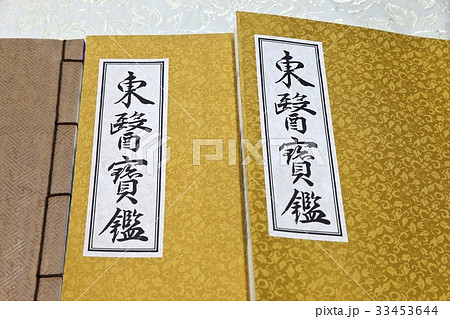 東醫寶鑑
東醫寶鑑
PIXTA
pixta.jp - 33453644